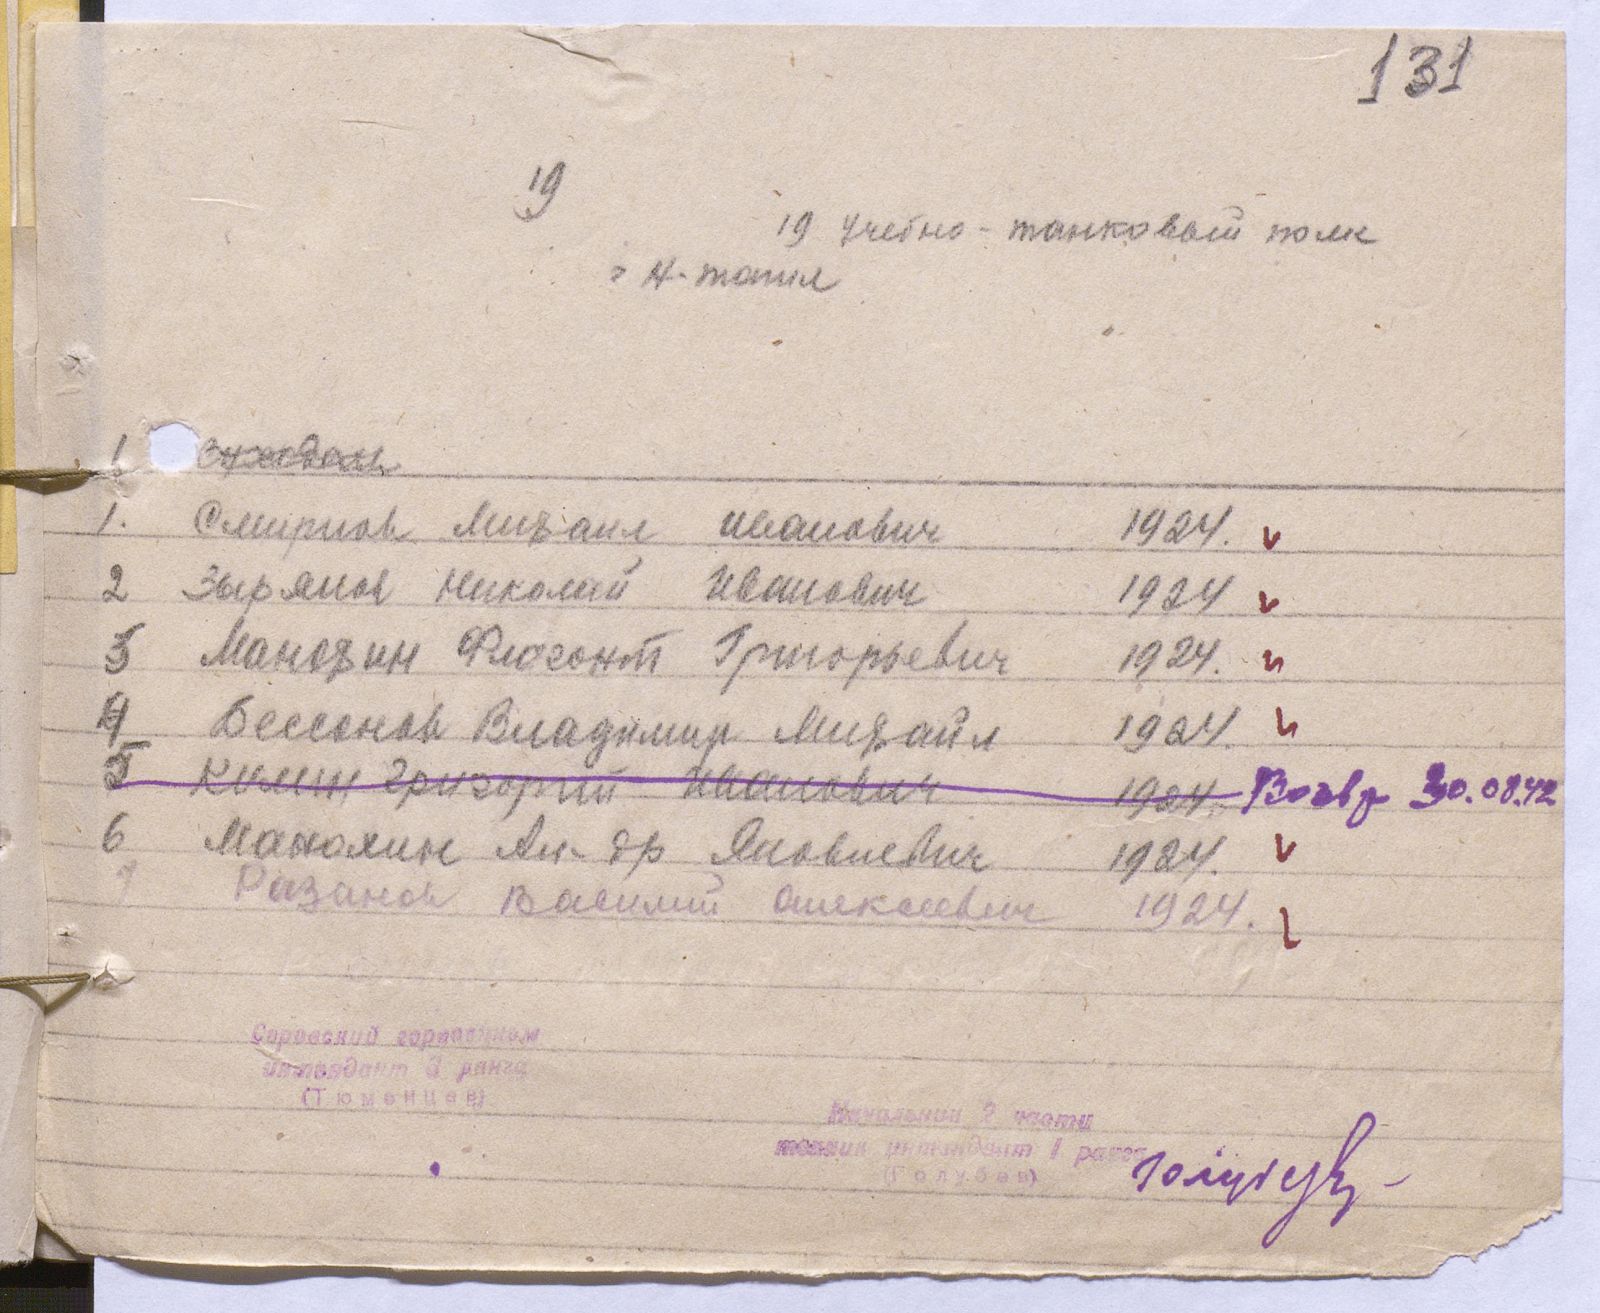 131
19
19 учебно-танковый полк
Н-тагил
1
1. Смирнов Михаил Иванович 1924.
2 Зырянов Николай Иванович 1924
3 Манохин Флегонт Григорьевич 1924.
4 Бессонов Владимир Михайл 1924.
5 Килин Григорий Иванович 1924. Возвр 30.08.42
6 Манохин Ал-др Яковлевич 1924.
7 Разанов Василий Алексеевич 1924.
Серовский горвоенком
интендант 3 ранга
(Тюменцев)
Начальник 2 части
техник интендант 1 ранга
(Голубев)